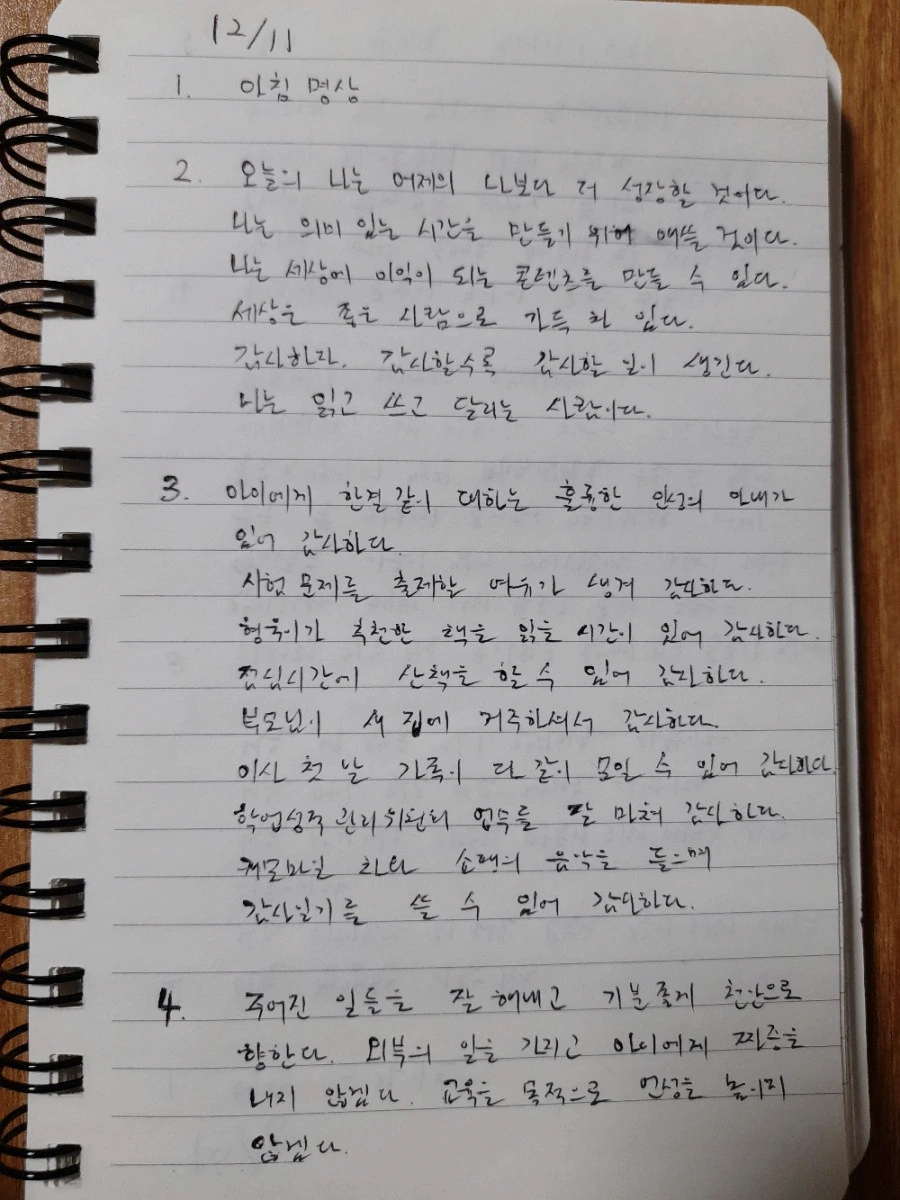 12/11
1. 아침 명상
2. 오늘의 나는 어제의 나보다 더 성장할 것이다.
나는 의미 있는 시간을 만들기 위해 애쓸 것이다.
나는 세상에 이익이 되는 콘텐츠를 만들 수 있다.
세상은 좋은 사람으로 가득 차 있다.
감사하라. 감사할수록 감사할 일이 생긴다.
나는 읽고 쓰고 달리는 사람이다.
3. 아이에게 한결같이 대하는 훌륭한 인격의 아내가
있어 감사하다.
시험 문제를 출제할 여유가 생겨 감사하다.
형욱이가 추천한 책을 읽을 시간이 있어 감사하다.
점심시간에 산책을 할 수 있어 감사하다.
부모님이 새 집에 거주하셔서 감사하다.
이사 첫 날 가족이 다 같이 모일 수 있어 감사하다
학업성적관리위원회 업무를 잘 마쳐 감사하다.
캐모마일 차와 쇼팽의 음악을 들으며
감사일기를 쓸 수 있어 감사하다.
4. 주어진 일들을 잘 해내고 기분좋게 천안으로
향한다. 외부의 일을 가지고 아이에게 짜증을
내지 않겠다. 교육을 목적으로 언성을 높이지
않겠다.